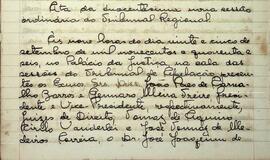 Acta da ducentésima nona sessão
ordinária do Tribunal Regional.
Às nove horas do dia vinte e cinco de
setembro de mil novecentos e quarenta e
seis, no Palácio da Justiça na sala das
sessões do Tribunal de Apelação, presen
tes os Exmos. Srs. Drs. João Paes de Carva-
lho Barros e Genaro Freire Presi-
dente e Vice Presidente, respectivamente,
Juizes de Direito Tomaz de Aquino
Cirillo Wanderlei e José Jeronimo de Me
deiros Correia, o Dr. José Joaquim de